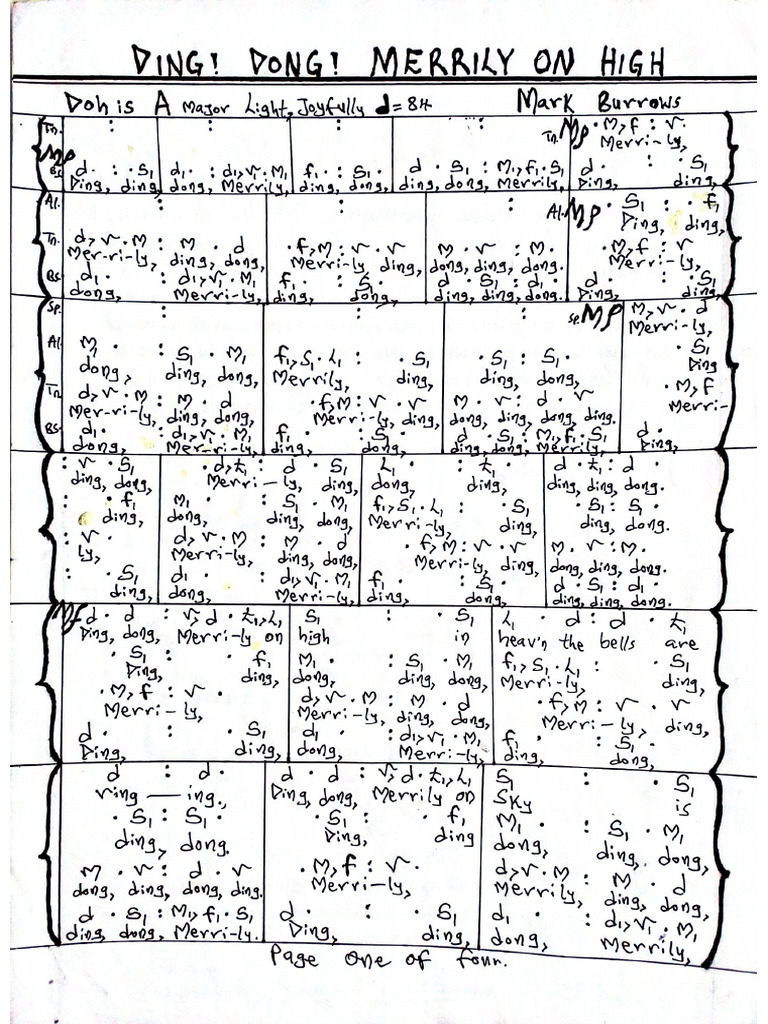 DING! DONG! MERRILY ON HIGH
Doh is A Major Light, Joyfully d=84 Mark Burrows
Tn. : : : : Tn. Mp . M,f : r.
Merri-ly,
Mp
Bs. d . : . S₁ d₁ . : d₁,r₁.M₁ f₁ . : S₁ . d . S₁ : M₁,f₁.S₁ d . : . S₁
Ding, ding, dong, Merrily, ding, dong, ding, dong, Merrily, Ding, ding,
Al. : : : Al. Mp . S₁ : . f₁
Ding, ding,
Tn. d,r.M : M . d . f,M : r . r M . r : M . . M,f : r
Mer-ri-ly, ding, dong, Merri-ly ding, dong, ding, dong. Merri-ly,
Bs. d₁ . : d₁,r₁.M₁ f₁ . : S₁ . d . S₁ : d₁ . d . : . S₁
dong, Merri-ly, ding, dong, ding, ding, dong. Ding, ding,
Sp. : : : Sp. Mp M,r . d
Merri-ly,
Al. M₁ . : S₁ . M₁ f₁,S₁.L₁ : . S₁ . S₁ : S₁ . . S₁
dong, ding, dong, Merrily, ding, ding, dong, Ding
Tn. d,r.M : M . d . f,M : r . r M . r : d . r . M,f
Mer-ri-ly, ding, dong, Merri-ly, ding dong, ding, dong, ding. Merri-
Bs. d₁ . : d₁,r₁.M₁ f₁ . : S₁ . d . S₁ : M₁,f₁.S₁ d .
dong, Mer-ri-ly, ding, dong, ding, dong, Merrily, Ding,
: r . S₁ . d,t₁ : d . S₁ L₁ . : t₁ . d . t₁ : d .
ding, dong, Merri-ly, ding, dong, ding, ding, ding, dong.
: . f₁ M₁ . : S₁ . M₁ f₁,S₁.L₁ : . S₁ . S₁ : S₁ .
ding, dong, ding, dong, Merri-ly, ding, ding, dong.
: r . d,r.M : M . d . f,M : r . r M . r : M .
ly, Merri-ly, ding, dong, Merri-ly, ding, dong, ding, dong.
: . S₁ d₁ . : d₁,r₁.M₁ f₁ . : S₁ . d . S₁ : d₁ .
ding, dong, Merri-ly, ding, dong, ding, ding, dong.
Mf d . d : r,d.t₁,L₁ S₁ : . S₁ L₁ . d : d . t₁
Ding, dong, Merri-ly on high in heav'n the bells are
. S₁ : . f₁ M₁ . : S₁ . M₁ f₁,S₁.L₁ : . S₁
Ding, ding, dong, ding, dong, Merri-ly, ding,
. M,f : r . d,r.M : M . d . f,M : r . r
Merri-ly, Merri-ly, ding, dong, Merri-ly, ding,
d . : . S₁ d₁ . : d₁,r₁.M₁ f₁ . : S₁ .
Ding, ding, dong, Merri-ly, ding, dong,
d : d . d . d : r,d.t₁,L₁ S₁ : . S₁
ring — ing., Ding, dong, Merrily on Sky is
. S₁ : S₁ . . S₁ : . f₁ M₁ . : S₁ . M₁
ding, dong. Ding, ding dong, ding, dong,
M . r : d . r . M,f : r . d,r.M : M . d
dong, ding, dong, ding. Merri-ly, Merrily, ding, dong,
d . S₁ : M₁,f₁.S₁ d . : . S₁ d₁ . : d₁,r₁.M₁
ding, dong, Merri-ly. Ding, ding, dong, Merrily,
Page One of four.